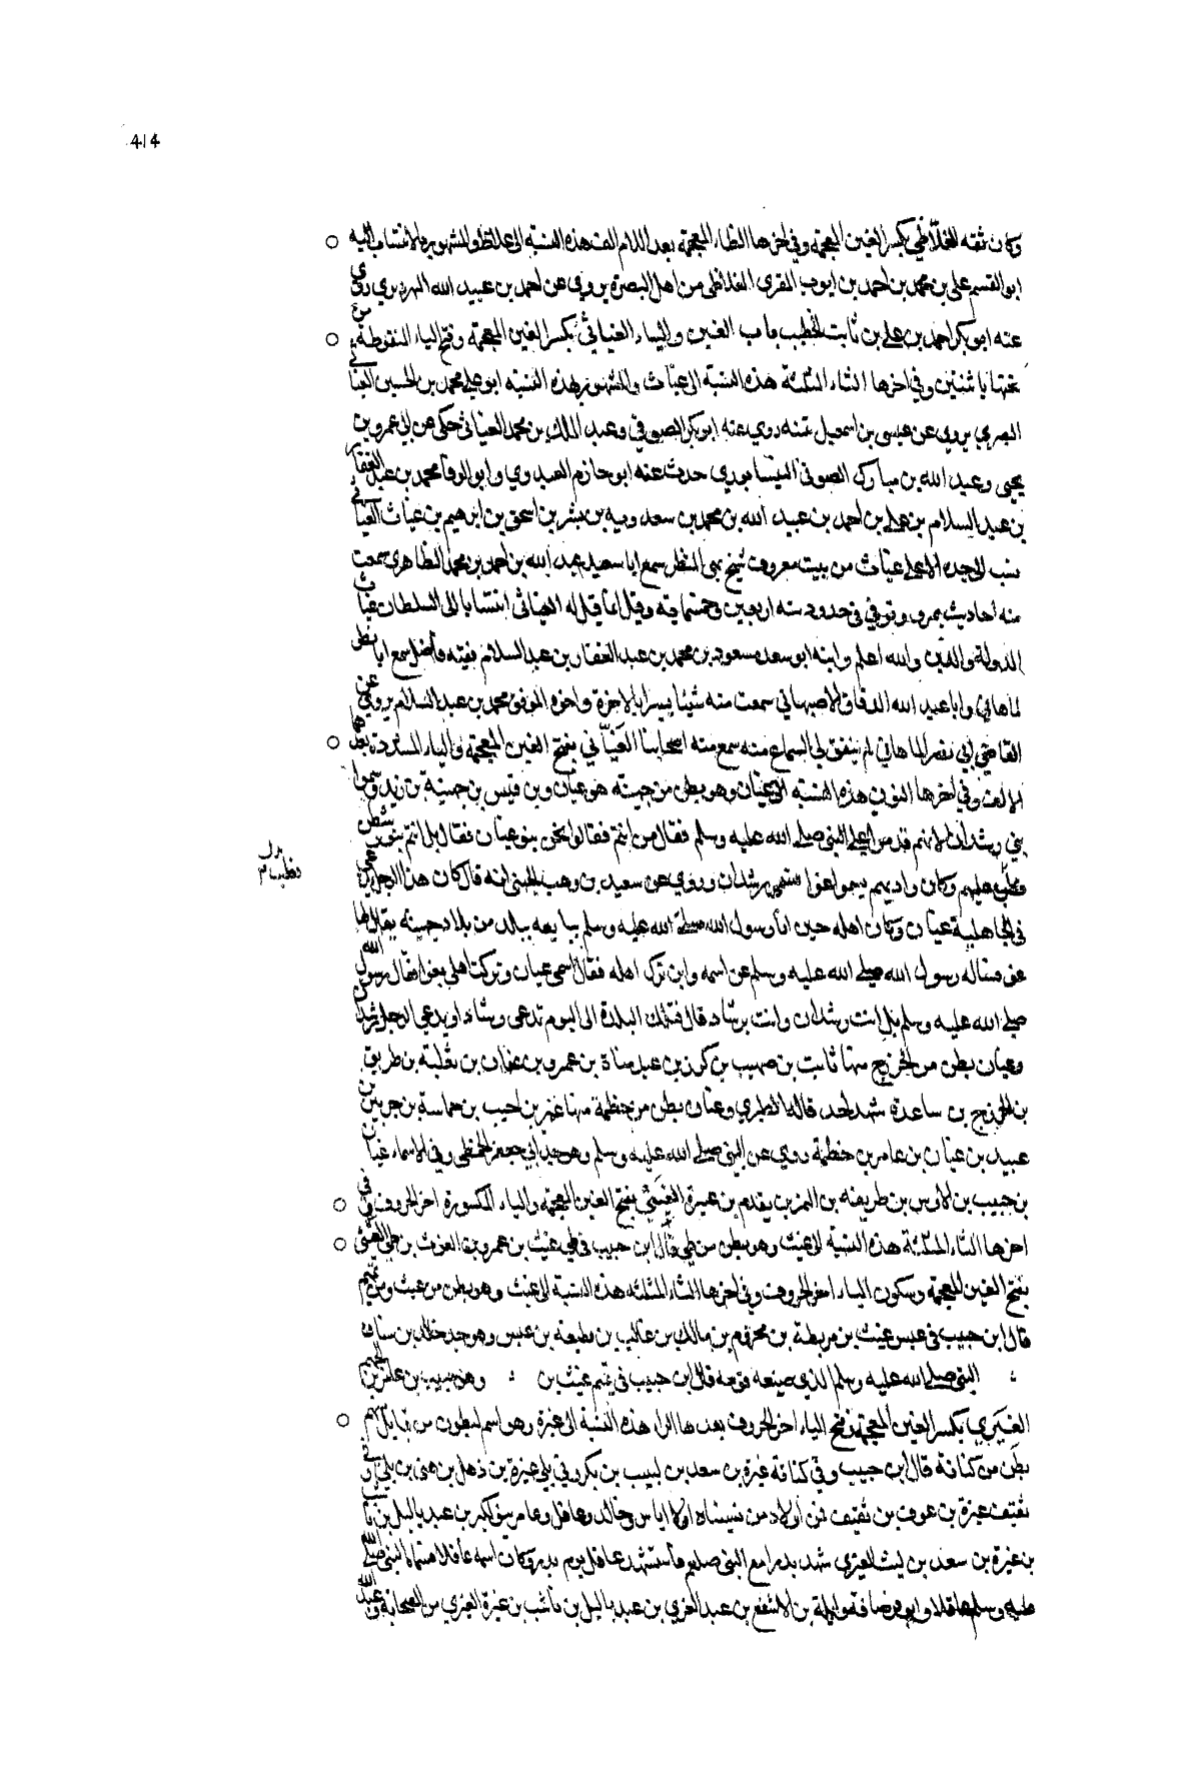 414
وكان ثقه الغلاظي بكسر الغين المعجمة وفي اخرها الظاء المعجمة بعد اللام الف هذه النسبة الى غلاظ والمشهور بالانتساب اليه
ابو القسم علي بن محمد بن احمد بن ايوب المقري الغلاظي من اهل البصرة يروي عن احمد بن عبيد الله النهرديري روى
عنه ابو بكر احمد بن علي بن ثابت الخطيب باب الغين والياء الغياثي بكسر الغين المعجمة وفتح الياء المنقوطة من
تحتها باثنتين وفي اخرها الثاء المثلثة هذه النسبة الى غياث والمشهور بهذه النسبه ابو علي محمد بن الحسين الغياثي
البصري يروي عن عيسى بن اسمعيل روى عنه ابو بكر الصوفي وعبد الملك بن محمد الغياثي حكى عن ابي عمرو بن
يحيى وعبد الله بن مبارك الصوفي النيسابوري حدث عنه ابو حازم العبدوي وابو الوفا محمد بن عبد الغفار
بن عبد السلام بن علي بن احمد بن عبيد الله بن محمد بن سعدويه بن بشر بن اسحق بن ابرهيم بن غياث الغياثي
نسب الى جده الاعلى غياث من بيت معروف شيخ بهي المنظر سمع ابا سعيد عبد الله بن احمد بن محمد الطاهري سمعت
منه احاديث بمرو وتوفي في حدود سنه اربعين وخمسماية وقيل انما قيل له الغياثي انتسابا الى السلطان غياث
الدولة والدين والله اعلم وابنه ابو سعد مسعود بن محمد بن عبد الغفار بن عبد السلام فقيه فاضل سمع ابا نصر
الماهاني وابا عبد الله الدقاق الاصبهاني سمعت منه شيئا يسيرا بالاخرة واخوه الموفق محمد بن عبد السلام يروي عن
القاضي ابي نصر الماهاني لم يتفق لي السماع منه سمع منه اصحابنا الغياني بفتح الغين المعجمة والياء المشددة بعدها
الالف وفي اخرها النون هذه النسبه الى غيان وهو بطن من جهينه هو غيان بن قيس بن جهينة بن زيد وسموا
بني رشدان لانهم قدموا على النبي صلى الله عليه وسلم فقال من انتم فقالوا نحن بنو غيان فقال بل انتم بنو رشدان
فغلب عليهم وكان واديهم يسمى غوا فسمي رشدان وروي عن سعيد بن وهب الجهني انه قال كان هذا الرجل
في الجاهلية غيان وكان اهله حين اتا رسول الله صلى الله عليه وسلم يبايعه ببلد من بلاد جهينه يقال لها
غوى فساله رسول الله صلى الله عليه وسلم عن اسمه واين ترك اهله فقال اسمي غيان وتركت اهلي بغوا فقال رسول الله
صلى الله عليه وسلم بل انت رشدان وانت برشاد قال فتلك البلدة الى اليوم تدعى رشاد ويدعى الرجل رشدان
وغيان بطن من الخزرج منها ثابت بن صهيب بن كرز بن عبد مناة بن عمرو بن غيان بن ثعلبة بن طريف
بن الخزرج بن ساعدة شهد احد قاله الطبري وغيان بطن من خطمة منها عمير بن حبيب بن حماسة بن جويبر بن
عبيد بن غيان بن عامر بن خطمة روى عن النبي صلى الله عليه وسلم وهو جد ابي جعفر الخطمي وفي الاسماء غيان
بن حبيب بن الاوس بن طريف بن النمر بن يقدم بن عنزة الغيثي بفتح الغين المعجمة والياء المكسورة اخر الحروف وفي
اخرها الثاء المثلثة هذه النسبة الى غيث وهو بطن من طي قال ابن حبيب في طي غيث بن عمرو بن الغوث بن طي الغيثي
بفتح الغين المعجمة وسكون الياء اخر الحروف وفي اخرها الثاء المثلثه هذه النسبة الى غيث وهو بطن من عبس ومن تميم
قال ابن حبيب في عبس غيث بن مريطة بن مخزوم بن مالك بن غالب بن قطيعة بن عبس وهو جد خالد بن سنان
النبي صلى الله عليه وسلم الذي ضيعه قومه قال ابن حبيب في تميم غيث بن وهو حبيب بن عامر بن الهجيم
الغيري بكسر الغين المعجمة وفتح الياء اخر الحروف بعدها الراء هذه النسبة الى غيرة وهو اسم لبطون من قبايل منهم
بطن من كنانة قال ابن حبيب وفي كنانة غيرة بن سعد بن ليث بن بكر وفي بلي غيرة بن ذهل بن هني بن بلي وفي
ثقيف غيرة بن عوف بن ثقيف فمن اولاد من نسبناه اولا اياس وخالد وعاقل وعامر بنو البكير بن عبد ياليل بن ناشب
بن غيرة بن سعد بن ليث الغيري شهد بدرا مع النبي صلعم فاستشهد عاقل يوم بدر وكان اسمه غافلا فسماه النبي صلى الله
عليه وسلم عاقلا وابو قرصافة واثلة بن الاسقع بن عبد العزى بن عبد ياليل بن ناشب بن غيرة الغيري من الصحابة وعبد الله